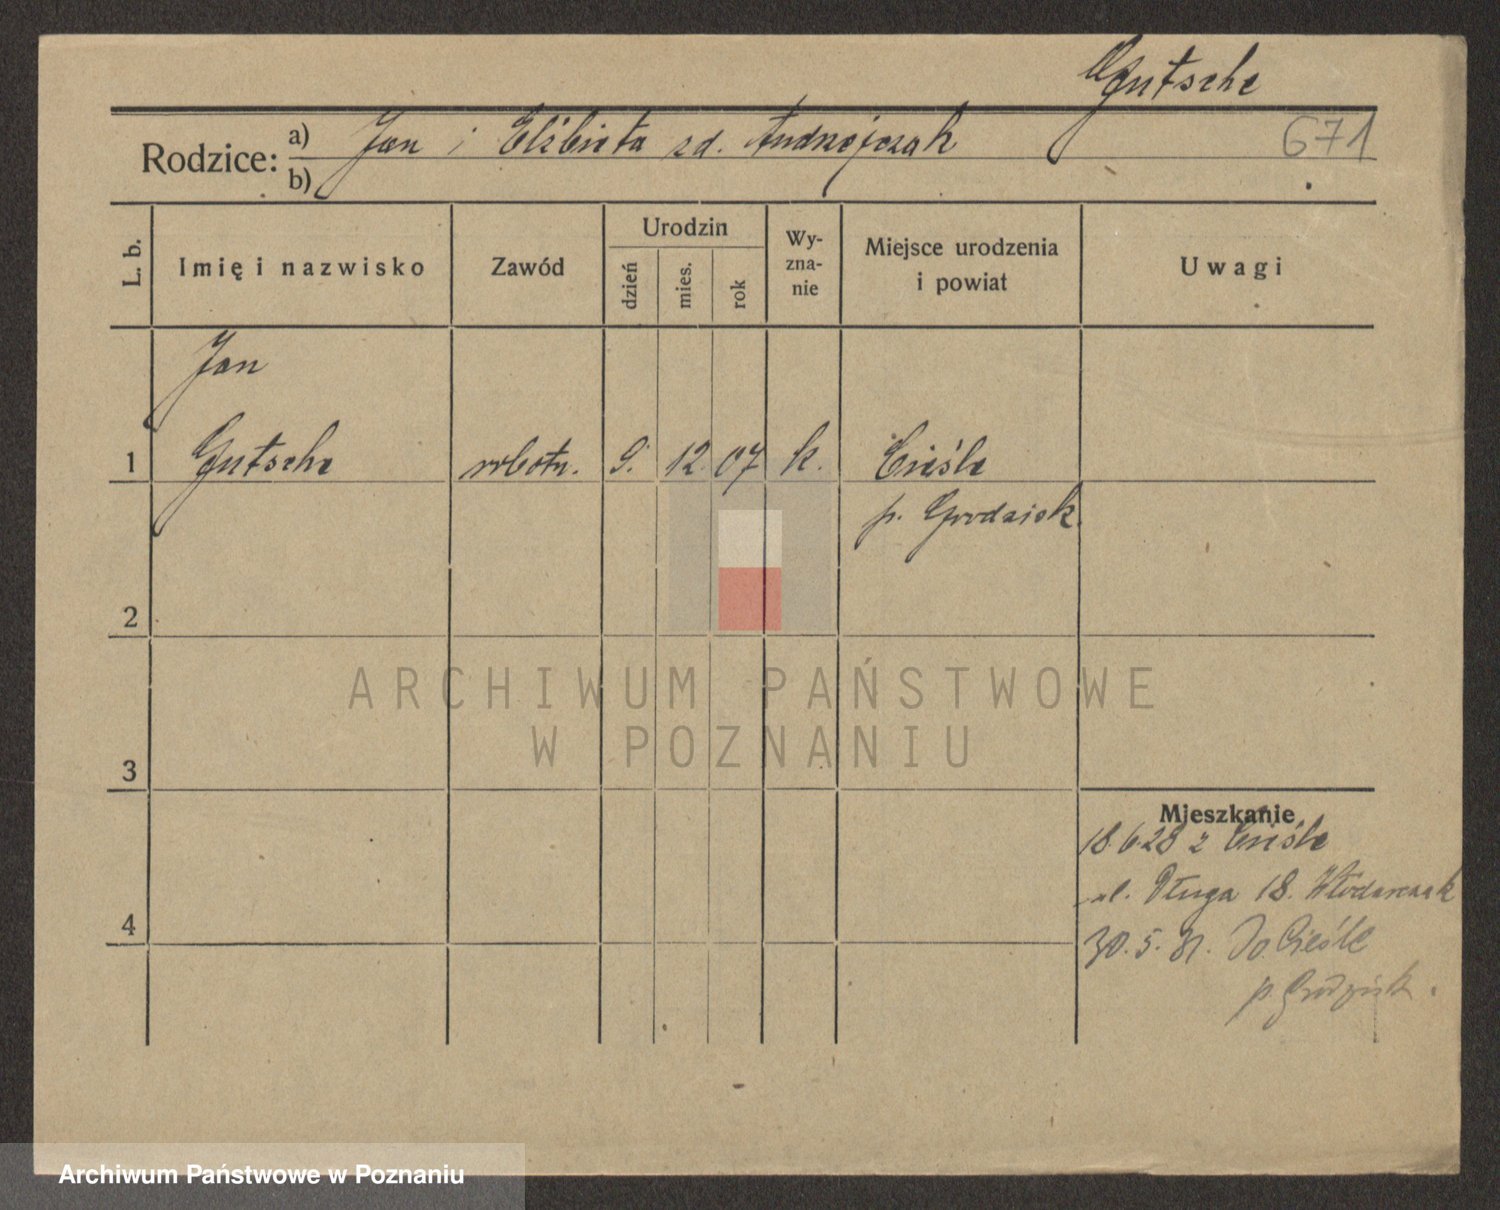 Gutsche
Rodzice: a) Jan i Elżbieta zd. Andrzejczak
b)
671
L. b.
Imię i nazwisko
Zawód
Urodzin
dzień
mies.
rok
Wy-
zna-
nie
Miejsce urodzenia
i powiat
Uwagi
Jan
1 Gutsche robotn. 9. 12. 07 k. Cieśle
p. Grodzisk.
2
3
4
ARCHIWUM PAŃSTWOWE
W POZNANIU
Mieszkanie
18.6.28 z Cieśle
ul. Długa 18. Włodarczak
30.5.31. Do Cieśle
p. Grodzisk.
Archiwum Państwowe w Poznaniu